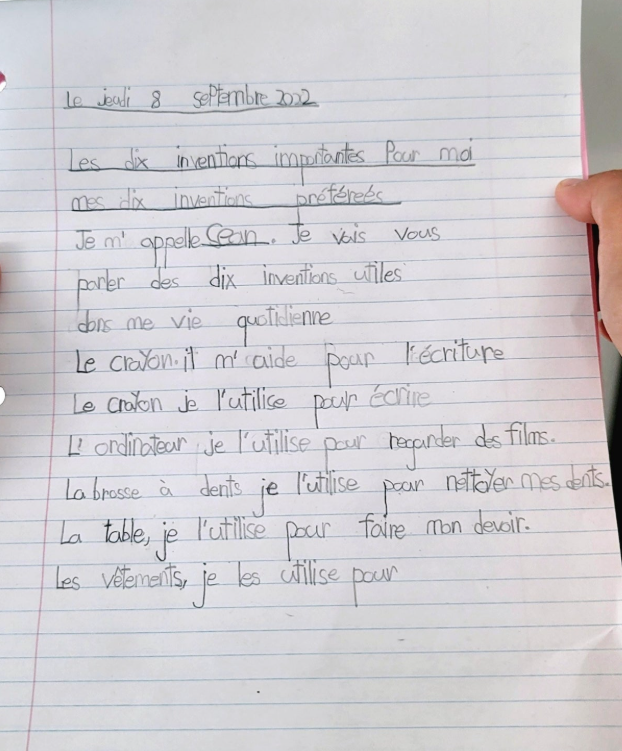 Le jeudi 8 septembre 2022
Les dix inventions importantes Pour moi
mes dix inventions préféreés
Je m'appelle Sean. Je vais vous
parler des dix inventions utiles
dans me vie quotidienne
Le crayon. il m'aide pour l'écriture
Le crayon je l'utilise pour écrire
L'ordinateur je l'utilise pour regarder des films.
La brosse à dents je l'utilise pour nettoyer mes dents.
La table, je l'utilise pour faire mon devoir.
Les vêtements, je les utilise pour